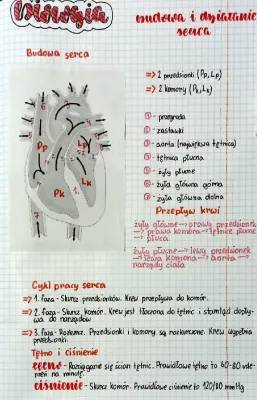 Biologia
budowa i działanie
serca
Budowa serca
=> 2 przedsionki (Pp, Lp)
=> 2 komory (Pk, Lk)
Pp
Lp
Pk
Lk
① - przegroda
② - zastawki
③ - aorta (największa tętnica)
④ - tętnica płucna
⑤ - żyły płucne
⑥ - żyła główna górna
⑦ - żyła główna dolna
Przepływ krwi
żyły główne → prawy przedsionek
→ prawa komora → tętnice płucne
→ płuca
żyły płucne → lewy przedsionek
→ lewa komora → aorta →
narządy ciała
Cykl pracy serca
=> 1. faza - Skurcz przedsionków. Krew przepływa do komór.
=> 2. faza - Skurcz komór. Krew jest tłoczona do tętnic i stamtąd dopływa do narządów
=> 3. faza - Rozkurcz. Przedsionki i komory są rozkurczone. Krew wypełnia
przedsionki.
Tętno i ciśnienie
tętno - Rozciąganie się ścian tętnic. Prawidłowe tętno to 60-80 uderzeń na minutę.
ciśnienie - Skurcz komór. Prawidłowe ciśnienie to 120/80 mmHg